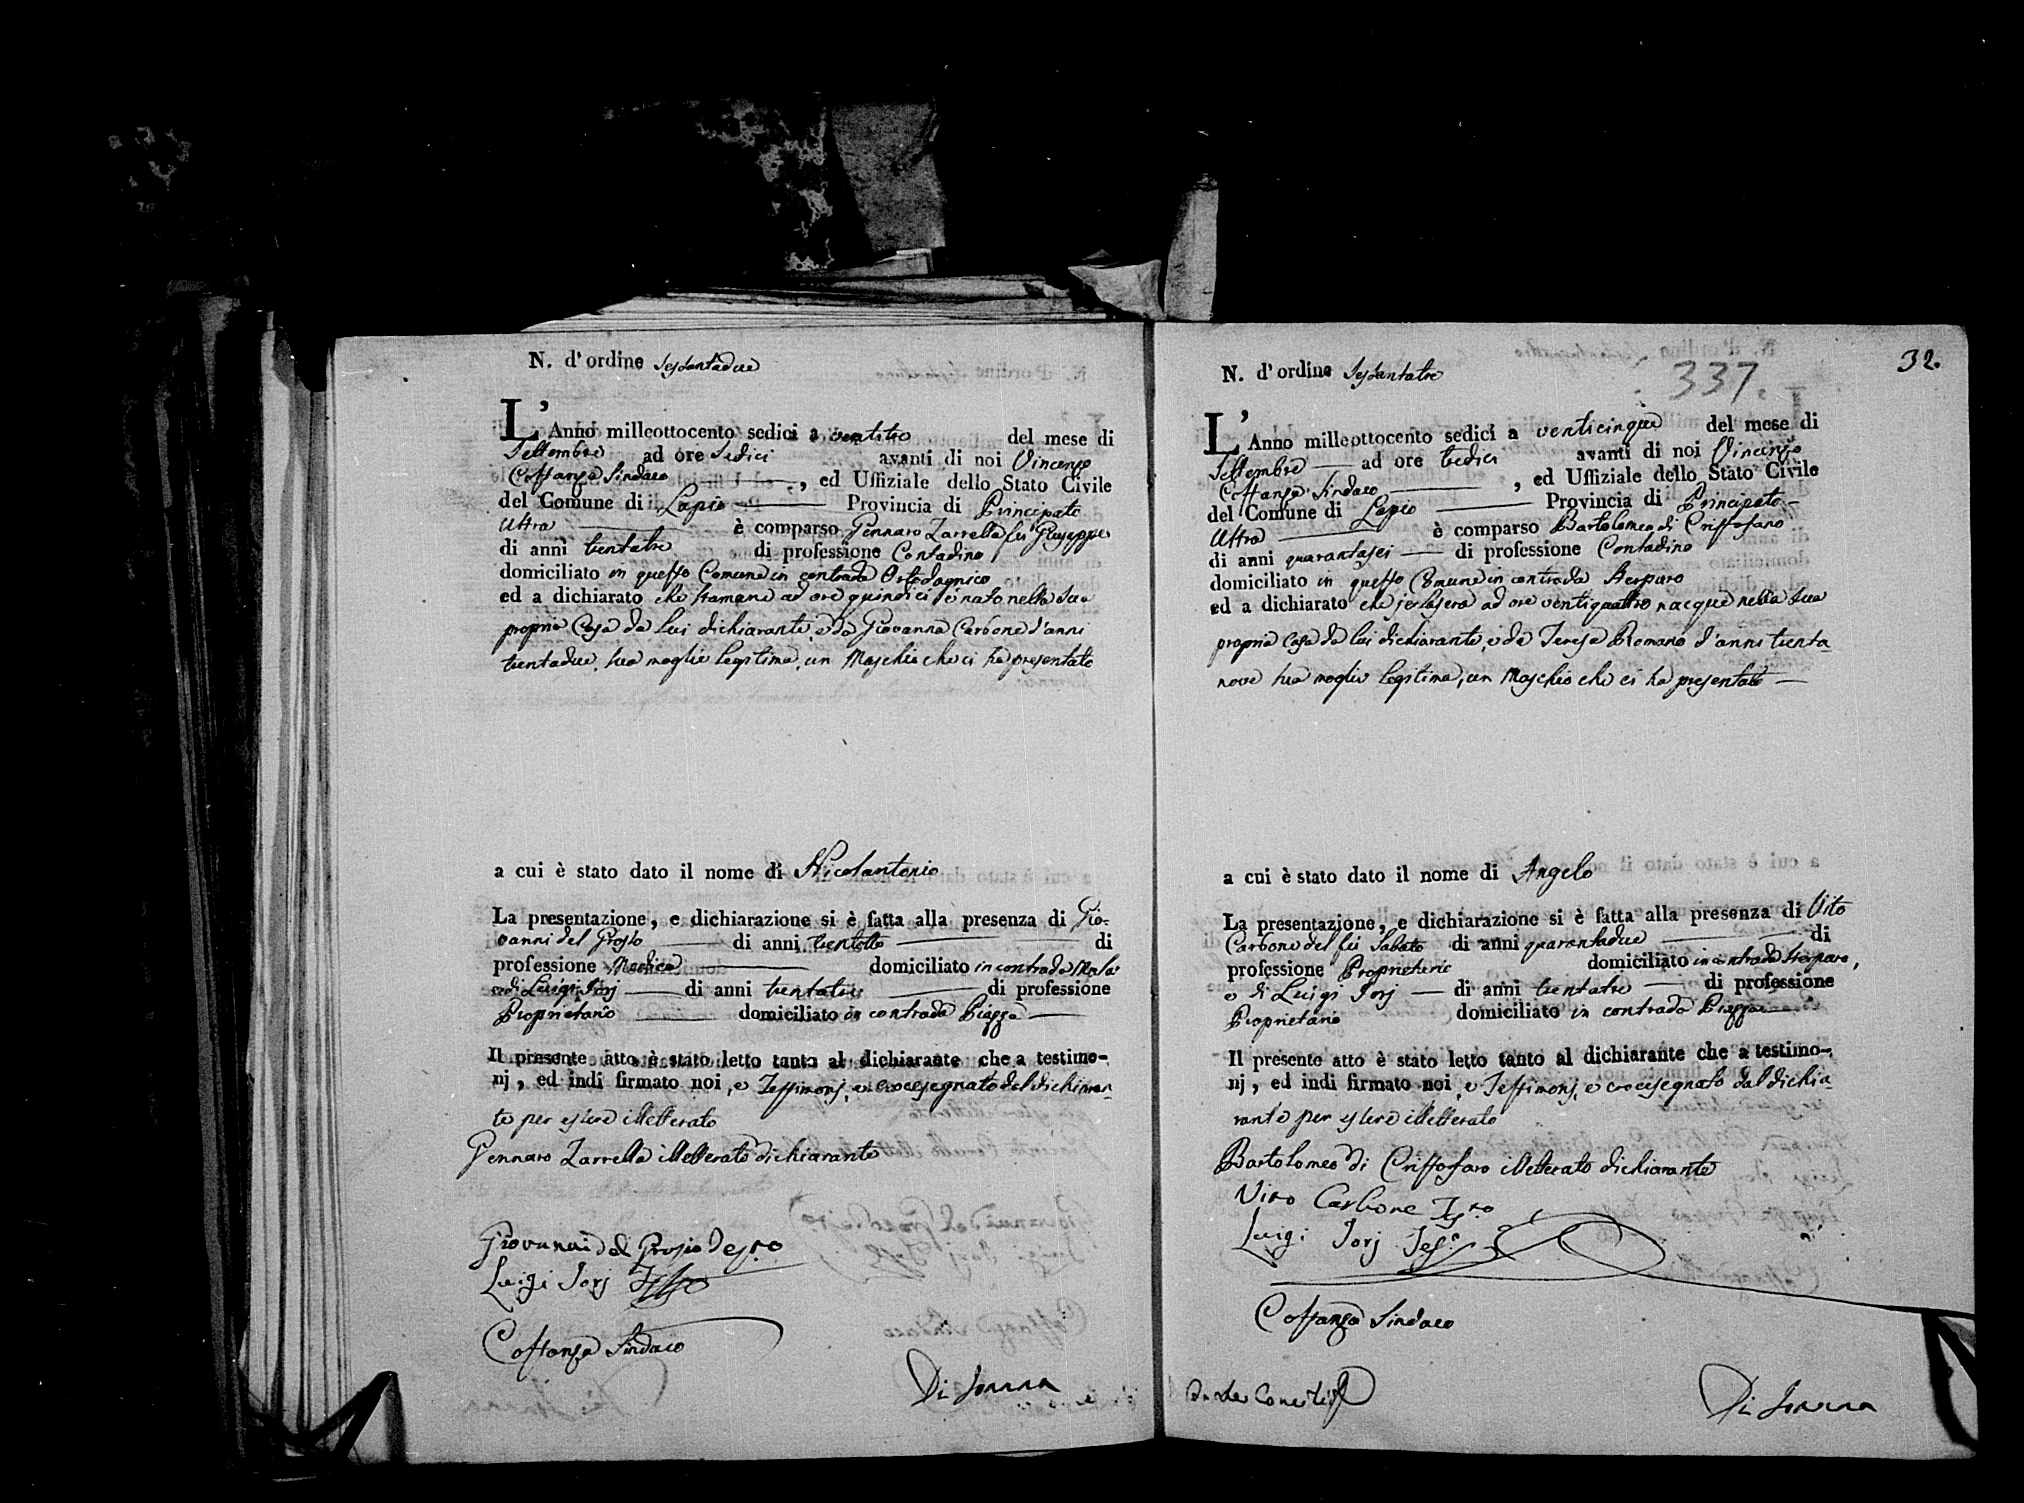 N. d'ordine Sessantadue
L'Anno milleottocento sedici a ventitre del mese di
Settembre ad ore Sedici avanti di noi Vincenzo
Costanza Sindaco , ed Uffiziale dello Stato Civile
del Comune di Lapio Provincia di Principato
Ultra è comparso Gennaro Zarrella fu Giuseppe
di anni trentatre di professione Contadino
domiciliato in questo Comune in contrada
ed a dichiarato che stamane ad ore quindici è nato nella sua
propria Casa da lui dichiarante e da Giovanna Carbone d'anni
trentadue, sua moglie legitima, un Maschio che ci ha presentato
a cui è stato dato il nome di Nicolantonio
La presentazione, e dichiarazione si è fatta alla presenza di Gio-
vanni del Grosso di anni trentotto di
professione Medico domiciliato in contrada
e di Luigi Jorj di anni trentatre di professione
Proprietario domiciliato in contrada Piazza
Il presente atto è stato letto tanto al dichiarante che a testimo-
nj, ed indi firmato noi, e Testimonj, e crocesegnato dal dichiaran-
te per essere illetterato
Gennaro Zarrella illetterato dichiarante
Giovanni del Grosso
Luigi Jorj
Costanza Sindaco
Di
32.
N. d'ordine Sessantatre
337.
L'Anno milleottocento sedici a venticinque del mese di
Settembre ad ore tredici avanti di noi Vincenzo
Costanza Sindaco , ed Uffiziale dello Stato Civile
del Comune di Lapio Provincia di Principato
Ultra è comparso Bartolomeo di Cristofaro
di anni quarantasei di professione Contadino
domiciliato in questo Comune in contrada
ed a dichiarato che jerlasera ad ore ventiquattro nacque nella sua
propria casa da lui dichiarante, e da Teresa Romano d'anni trenta
nove sua moglie legitima, un Maschio che ci ha presentato
a cui è stato dato il nome di Angelo
La presentazione, e dichiarazione si è fatta alla presenza di Vito
Carbone del fu Sabato di anni quarantadue di
professione Proprietario domiciliato in contrada
e di Luigi Jorj di anni trentatre di professione
Proprietario domiciliato in contrada Piazza
Il presente atto è stato letto tanto al dichiarante che a testimo-
nj, ed indi firmato noi, e Testimonj, e crocesegnato dal dichia-
rante per essere illetterato
Bartolomeo di Cristofaro illetterato dichiarante
Vito Carbone
Luigi Jorj
Costanza Sindaco
Di